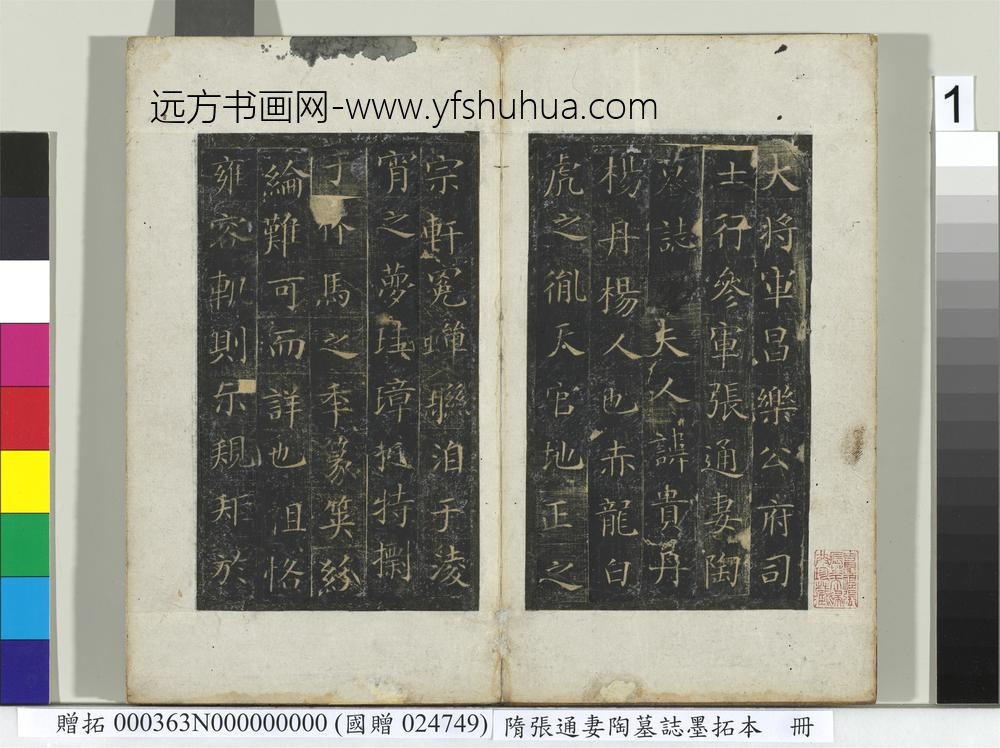 远方书画网-www.yfshuhua.com
1
大將軍昌樂公府司
士行參軍張通妻陶
墓誌 夫人諱貴丹
楊丹楊人也赤龍白
虎之胤天官地正之
宗軒冕蟬聯洎于淩
宵之夢珪璋挺特
竹馬之秊篆紛
綸難可而詳也沮恪
雍容軌則規矩於
贈拓 000363N000000000 (國贈 024749)
隋張通妻陶墓誌墨拓本 冊